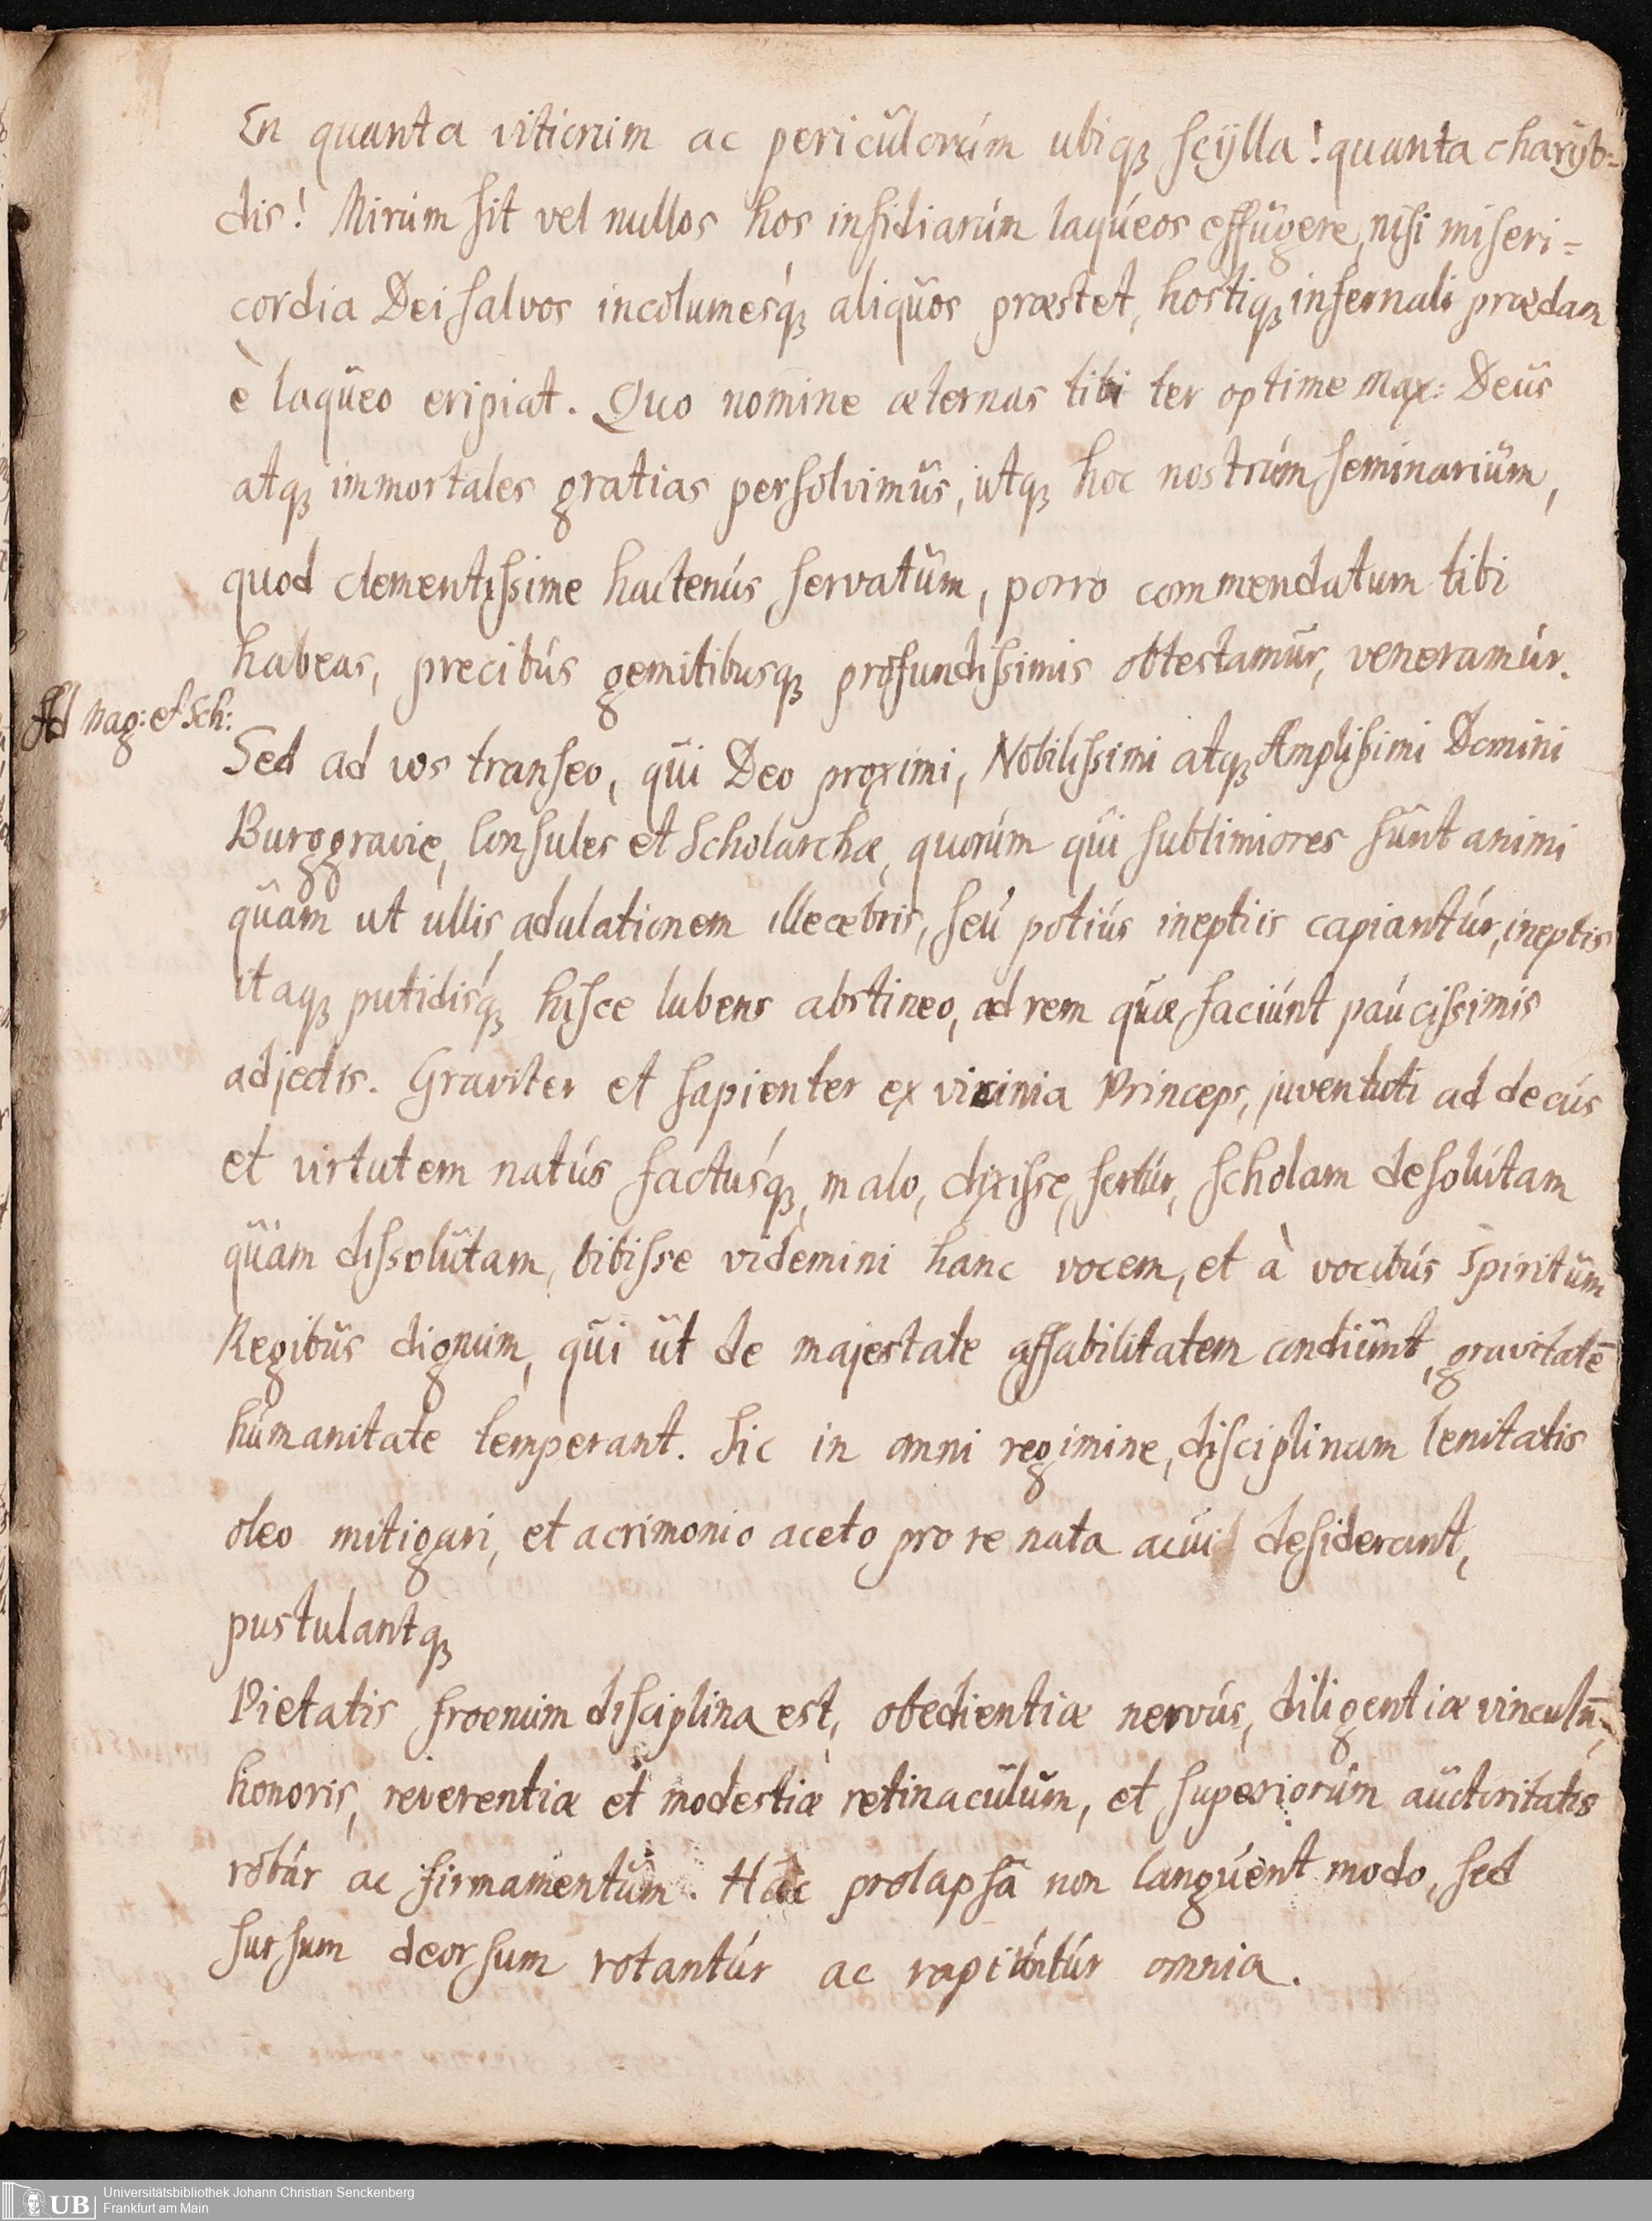 En quanta vitiorum ac periculorum ubiq; scylla! quanta charyb=
dis! Mirum sit vel nullos hos insidiarum laqueos effugere, nisi miseri=
cordia Dei salvos incolumesq; aliquos præstet, hostiq; infernali prædam
è laqueo eripiat. Quo nomine æternas tibi ter optime Max: Deus
atq; immortales gratias persolvimus, utq; hoc nostrum seminarium,
quod clementissime hactenus servatum, porro commendatum tibi
habeas, precibus gemitibusq; profundissimis obtestamur, veneramur.
Ad Mag: et Sch:
Sed ad vos transeo, qui Deo proximi, Nobilissimi atq; Amplissimi Domini
Burggravie, Consules et Scholarchæ, quorum qui sublimiores sunt animi
quam ut ullis adulationem illecebris, seu potius ineptiis capiantur, ineptis
itaq; putidisq; hisce lubens abstineo, ad rem quæ faciunt paucissimis
adjectis. Graviter et sapienter ex vicinia Princeps, juventuti ad decus
et virtutem natus factusq; malo, dixisse, fertur, scholam desolutam
quam dissolutam, bibisse videmini hanc vocem, et à vocibus spiritum
Regibus dignum, qui ut de majestate affabilitatem condiunt, gravitatē
humanitate temperant. Sic in omni regimine, disciplinam lenitatis
oleo mitigari, et acrimonio aceto pro re nata acui desiderant,
pustulantq;
Pietatis froenum disciplina est, obedientiæ nervus, diligentiæ vinculū,
honoris, reverentiæ et modestiæ retinaculum, et superiorum auctoritatis
robur ac firmamentum. Hac prolapsa non languent modo, sed
sursum deorsum rotantur ac rapiuntur omnia.
UB Universitätsbibliothek Johann Christian Senckenberg
Frankfurt am Main